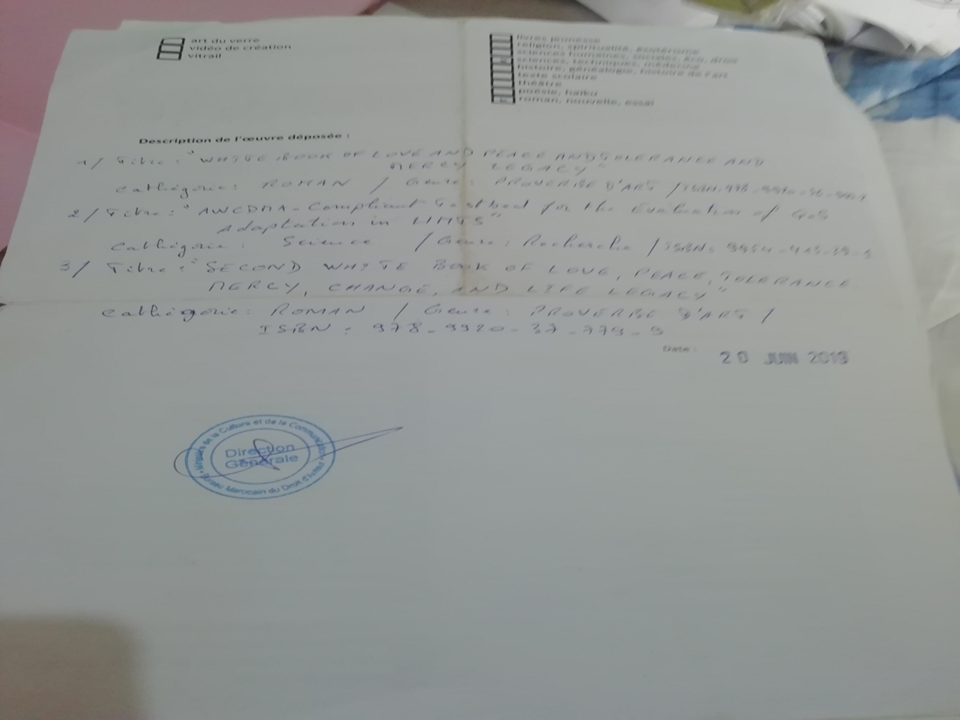 art du verre
vidéo de création
vitrail
livres jeunesse
religion, spiritualité, ésotérisme
sciences humaines, sociales, éco, droit
sciences, techniques, médecine
histoire, généalogie, histoire de l'art
texte scolaire
théâtre
poésie, haïku
roman, nouvelle, essai
Description de l'œuvre déposée :
1/ Titre : "WHITE BOOK OF LOVE AND PEACE AND TOLERANCE AND
MERCY LEGACY
Cathégorie : ROMAN / Genre : PROVERBE D'ART / ISBN:
2/ Titre : "AWCDMA-Compliant Testbed for the Evaluation of QoS
Adaptation in UMTS"
Cathégorie : Science / Genre : Recherche / ISBN:
3/ Titre : "SECOND WHITE BOOK OF LOVE, PEACE, TOLERANCE
MERCY, CHANGE, AND LIFE LEGACY"
Cathégorie : ROMAN / Genre : PROVERBE D'ART /
ISBN : 978-9920-37-779-9
Date : 20 JUIN 2019
Direction
Générale
de la Culture et de la Communication
Bureau Marocain du Droit d'Auteur